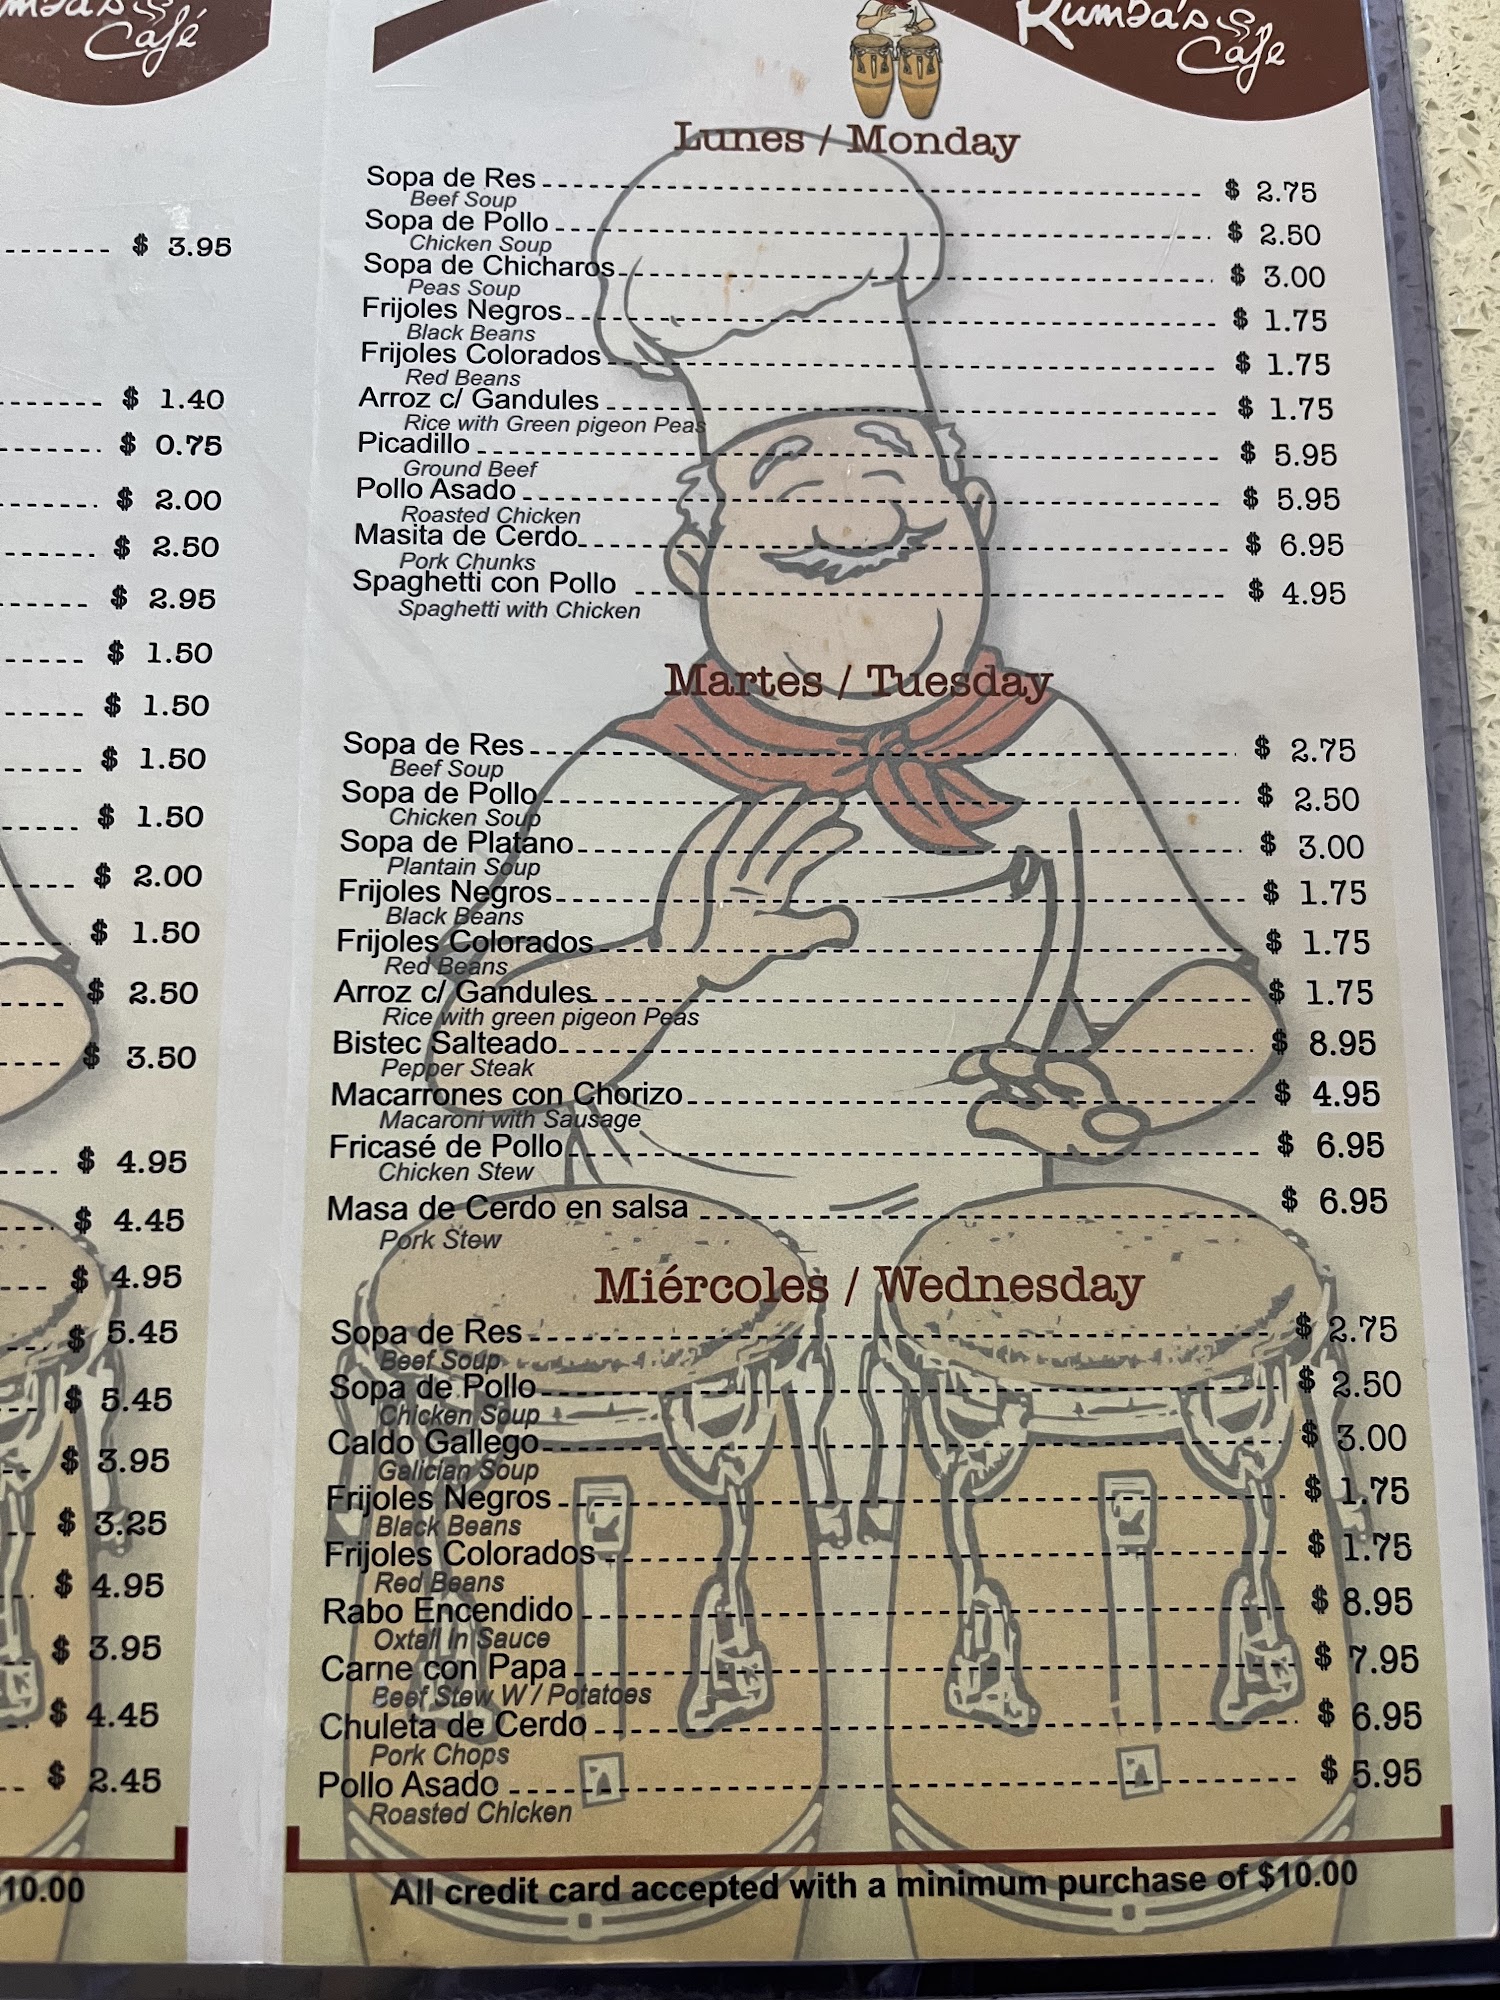 Café
$ 3.95
$ 1.40
$ 0.75
$ 2.00
$ 2.50
$ 2.95
$ 1.50
$ 1.50
$ 1.50
$ 1.50
$ 2.00
$ 1.50
$ 2.50
$ 3.50
$ 4.95
$ 4.45
$ 4.95
$ 5.45
$ 5.45
$ 3.95
$ 3.25
$ 4.95
$ 3.95
$ 4.45
$ 2.45
10.00
Rumba's
Cafe
Lunes / Monday
Sopa de Res $ 2.75
Beef Soup
Sopa de Pollo $ 2.50
Chicken Soup
Sopa de Chicharos $ 3.00
Peas Soup
Frijoles Negros $ 1.75
Black Beans
Frijoles Colorados $ 1.75
Red Beans
Arroz c/ Gandules $ 1.75
Rice with Green pigeon Peas
Picadillo $ 5.95
Ground Beef
Pollo Asado $ 5.95
Roasted Chicken
Masita de Cerdo $ 6.95
Pork Chunks
Spaghetti con Pollo $ 4.95
Spaghetti with Chicken
Martes / Tuesday
Sopa de Res $ 2.75
Beef Soup
Sopa de Pollo $ 2.50
Chicken Soup
Sopa de Platano $ 3.00
Plantain Soup
Frijoles Negros $ 1.75
Black Beans
Frijoles Colorados $ 1.75
Red Beans
Arroz c/ Gandules $ 1.75
Rice with green pigeon Peas
Bistec Salteado $ 8.95
Pepper Steak
Macarrones con Chorizo $ 4.95
Macaroni with Sausage
Fricasé de Pollo $ 6.95
Chicken Stew
Masa de Cerdo en salsa $ 6.95
Pork Stew
Miércoles / Wednesday
Sopa de Res $ 2.75
Beef Soup
Sopa de Pollo $ 2.50
Chicken Soup
Caldo Gallego $ 3.00
Galician Soup
Frijoles Negros $ 1.75
Black Beans
Frijoles Colorados $ 1.75
Red Beans
Rabo Encendido $ 8.95
Oxtail In Sauce
Carne con Papa $ 7.95
Beef Stew W / Potatoes
Chuleta de Cerdo $ 6.95
Pork Chops
Pollo Asado $ 5.95
Roasted Chicken
All credit card accepted with a minimum purchase of $10.00